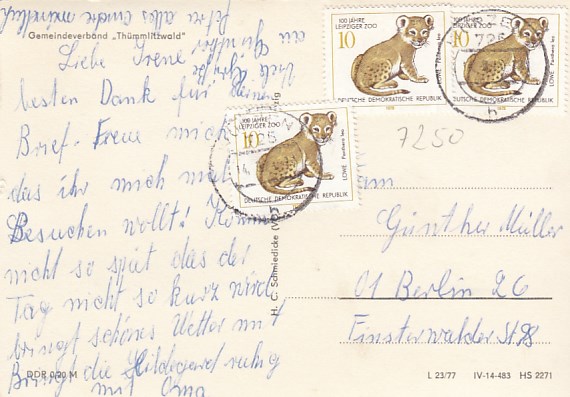 Gemeindeverband „Thümmlitzwald"
Liebe Irene
besten Dank für deinen
Brief. Freue mich
das ihr mich mal
Besuchen wollt! Kommt
nicht so spät das der
Tag nicht so kurz wird
bringt schönes Wetter mit
Bringt die Hildegard ruhig
mit Oma
alles andre mündlich
DDR 0,20 M
H. C. Schmiedicke (VO
100 JAHRE
LEIPZIGER ZOO
10
LÖWE Panthera leo
DEUTSCHE DEMOKRATISCHE REPUBLIK
1978
100 JAHRE
LEIPZIGER ZOO
10
LÖWE Panthera leo
DEUTSCHE DEMOKRATISCHE REPUBLIK
100 JAHRE
LEIPZIGER ZOO
10
LÖWE Panthera leo
DEUTSCHE DEMOKRATISCHE REPUBLIK
h
h
7250
Günther Müller
01 Berlin 26
Finsterwalder St.
L 23/77 IV-14-483 HS 2271